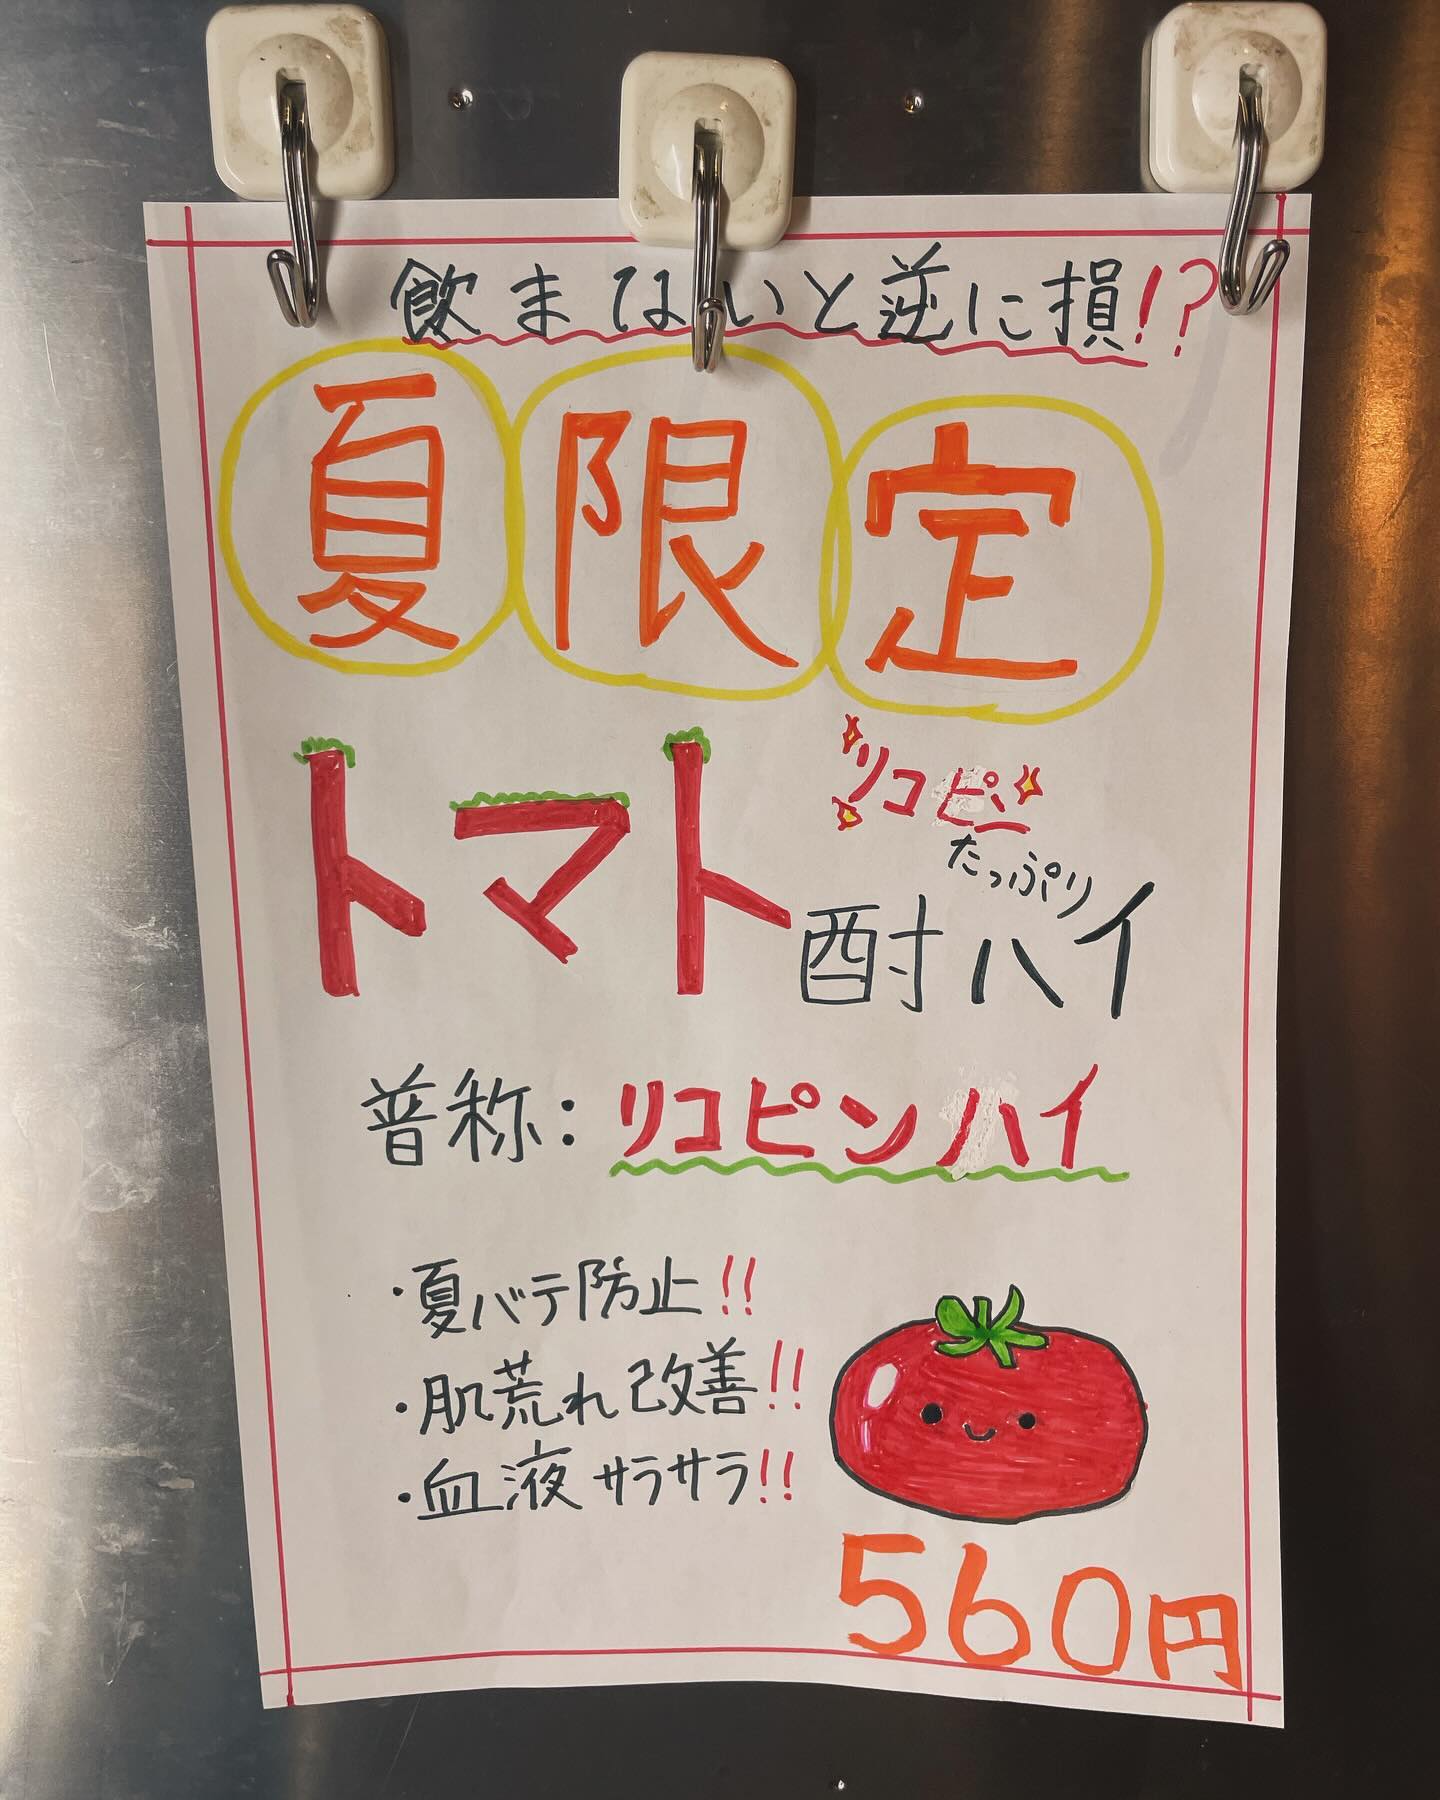 飲まないと逆に損!?
夏限定
リコピン
たっぷり
トマト酎ハイ
普称:リコピンハイ
・夏バテ防止!!
・肌荒れ改善!!
・血液サラサラ!!
560円